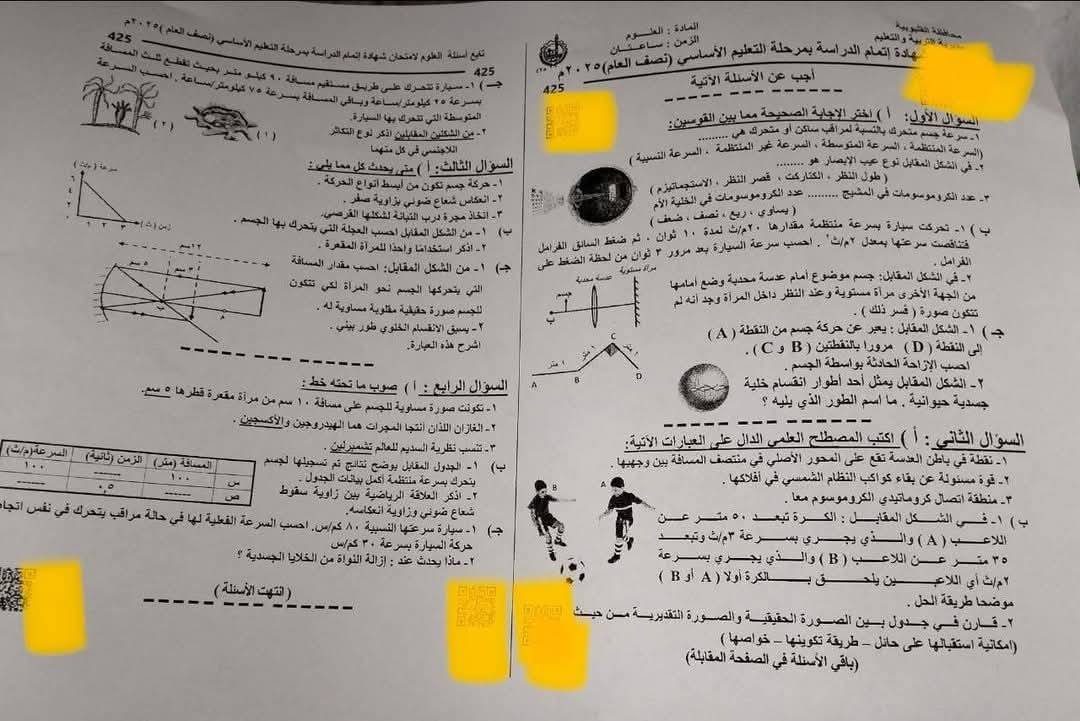 محافظة القليوبية
مديرية التربية والتعليم
المادة : العلوم
الزمن : ساعتان
شهادة إتمام الدراسة بمرحلة التعليم الأساسي (نصف العام) ٢٠٢٥م
425
أجب عن الأسئلة الآتية
السؤال الأول: أ ) اختر الإجابة الصحيحة مما بين القوسين:
١- سرعة جسم متحرك بالنسبة لمراقب ساكن أو متحرك هي .........
(السرعة المنتظمة ، السرعة المتوسطة ، السرعة غير المنتظمة ، السرعة النسبية )
٢- في الشكل المقابل نوع عيب الإبصار هو ........
( طول النظر ، الكتاركت ، قصر النظر ، الاستجماتيزم )
٣- عدد الكروموسومات في المشيج ......... عدد الكروموسومات في الخلية الأم
( يساوي ، ربع ، نصف ، ضعف )
ب ) ١- تحركت سيارة بسرعة منتظمة مقدارها ٢٠م/ث لمدة ١٠ ثوان ، ثم ضغط السائق الفرامل
فتناقصت سرعتها بمعدل ٢م/ث٢ . احسب سرعة السيارة بعد مرور ٣ ثوان من لحظة الضغط على
الفرامل .
٢- في الشكل المقابل: جسم موضوع أمام عدسة محدبة وضع أمامها
من الجهة الأخرى مرآة مستوية وعند النظر داخل المرآة وجد أنه لم
تتكون صورة ( فسر ذلك ) .
مرآة مستوية
عدسة محدبة
جسم
ب
جـ ) ١- الشكل المقابل : يعبر عن حركة جسم من النقطة ( A )
إلى النقطة ( D ) مرورا بالنقطتين ( B و C ) .
احسب الإزاحة الحادثة بواسطة الجسم .
A
B
C
D
٢- الشكل المقابل يمثل أحد أطوار انقسام خلية
جسدية حيوانية . ما اسم الطور الذي يليه ؟
السؤال الثاني : أ ) اكتب المصطلح العلمي الدال على العبارات الآتية:
١- نقطة في باطن العدسة تقع على المحور الأصلي في منتصف المسافة بين وجهيها .
٢- قوة مسئولة عن بقاء كواكب النظام الشمسي في أفلاكها .
٣- منطقة اتصال كروماتيدي الكروموسوم معا .
ب ) ١- في الشكل المقابل : الكرة تبعد ٥٠ متر عن
اللاعب ( A ) والذي يجري بسرعة ٣م/ث وتبعد
٣٥ متر عن اللاعب ( B ) والذي يجري بسرعة
٢م/ث أي اللاعبين يلحق بالكرة أولا ( A أو B )
موضحا طريقة الحل .
B
A
٢- قارن في جدول بين الصورة الحقيقية والصورة التقديرية من حيث
(امكانية استقبالها على حائل – طريقة تكوينها – خواصها )
(باقي الأسئلة في الصفحة المقابلة)
تابع أسئلة العلوم لامتحان شهادة إتمام الدراسة بمرحلة التعليم الأساسي (نصف العام )٢٠٢٥م
425
425
جـ ) ١- سيارة تتحرك على طريق مستقيم مسافة ٩٠ كيلو متر بحيث تقطع ثلث المسافة
بسرعة ٢٥ كيلومتر/ساعة وباقي المسافة بسرعة ٧٥ كيلومتر/ساعة ، احسب السرعة
المتوسطة التي تتحرك بها السيارة.
٢- من الشكلين المقابلين اذكر نوع التكاثر
اللاجنسي في كل منهما
(١)
(٢)
السؤال الثالث: أ ) متى يحدث كل مما يلي :
١- حركة جسم تكون من أبسط أنواع الحركة .
٢- انعكاس شعاع ضوئي بزاوية صفر .
٣- اتخاذ مجرة درب التبانة لشكلها القرصي.
ب) ١- من الشكل المقابل احسب العجلة التي يتحرك بها الجسم .
٢- اذكر استخدامًا واحدًا للمرآة المقعرة .
سرعة (م/ث)
زمن (ث)
١ ٢ ٣
جـ) ١- من الشكل المقابل: احسب مقدار المسافة
التي يتحركها الجسم نحو المرآة لكي تتكون
للجسم صورة حقيقية مقلوبة مساوية له .
٢- يسبق الانقسام الخلوي طور بيني .
اشرح هذه العبارة.
١٢سم
٥ سم
٣ سم
السؤال الرابع : أ ) صوب ما تحته خط :
١- تكونت صورة مساوية للجسم على مسافة ١٠ سم من مرآة مقعرة قطرها ٥ سم.
٢- الغازان اللذان أنتجا المجرات هما الهيدروجين والأكسجين .
٣- تنسب نظرية السديم للعالم تشمبرلين .
ب) ١- الجدول المقابل يوضح نتائج تم تسجيلها لجسم
يتحرك بسرعة منتظمة أكمل بيانات الجدول .
المسافة (متر) الزمن (ثانية) السرعة(م/ث)
س ١٠٠ ------ ١٠٠
ص ------ ٠,٥ ------
٢- اذكر العلاقة الرياضية بين زاوية سقوط
شعاع ضوئي وزاوية انعكاسه.
جـ) ١- سيارة سرعتها النسبية ٨٠ كم/س. احسب السرعة الفعلية لها في حالة مراقب يتحرك في نفس اتجاه
حركة السيارة بسرعة ٣٠ كم/س
٢- ماذا يحدث عند : إزالة النواة من الخلايا الجسدية ؟
( انتهت الأسئلة )